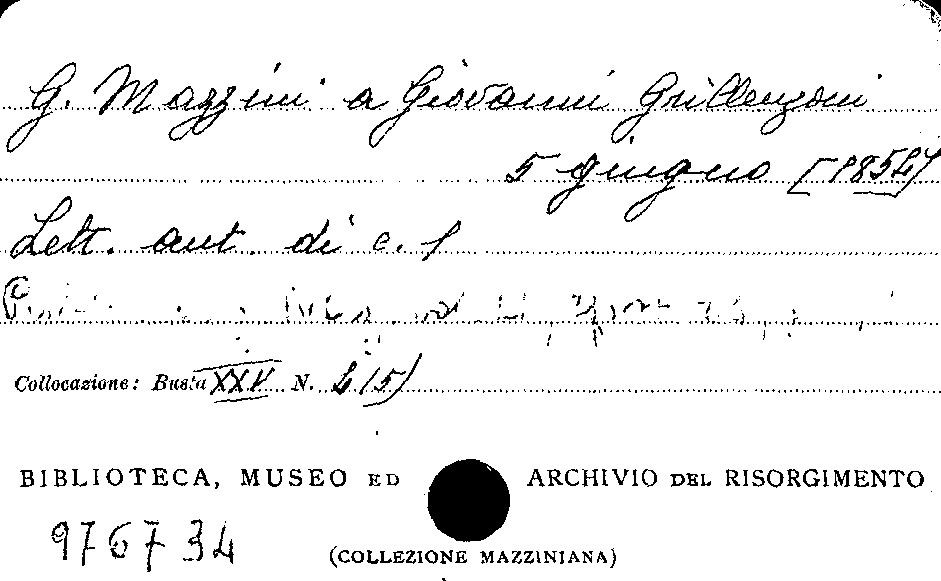 G. Mazzini a Giovanni Grillenzoni
5 giugno [1854]
Lett. aut. di c. 1
Collocazione: Busta XXV N. 4 (5)
BIBLIOTECA, MUSEO ED ARCHIVIO DEL RISORGIMENTO
976734
(COLLEZIONE MAZZINIANA)